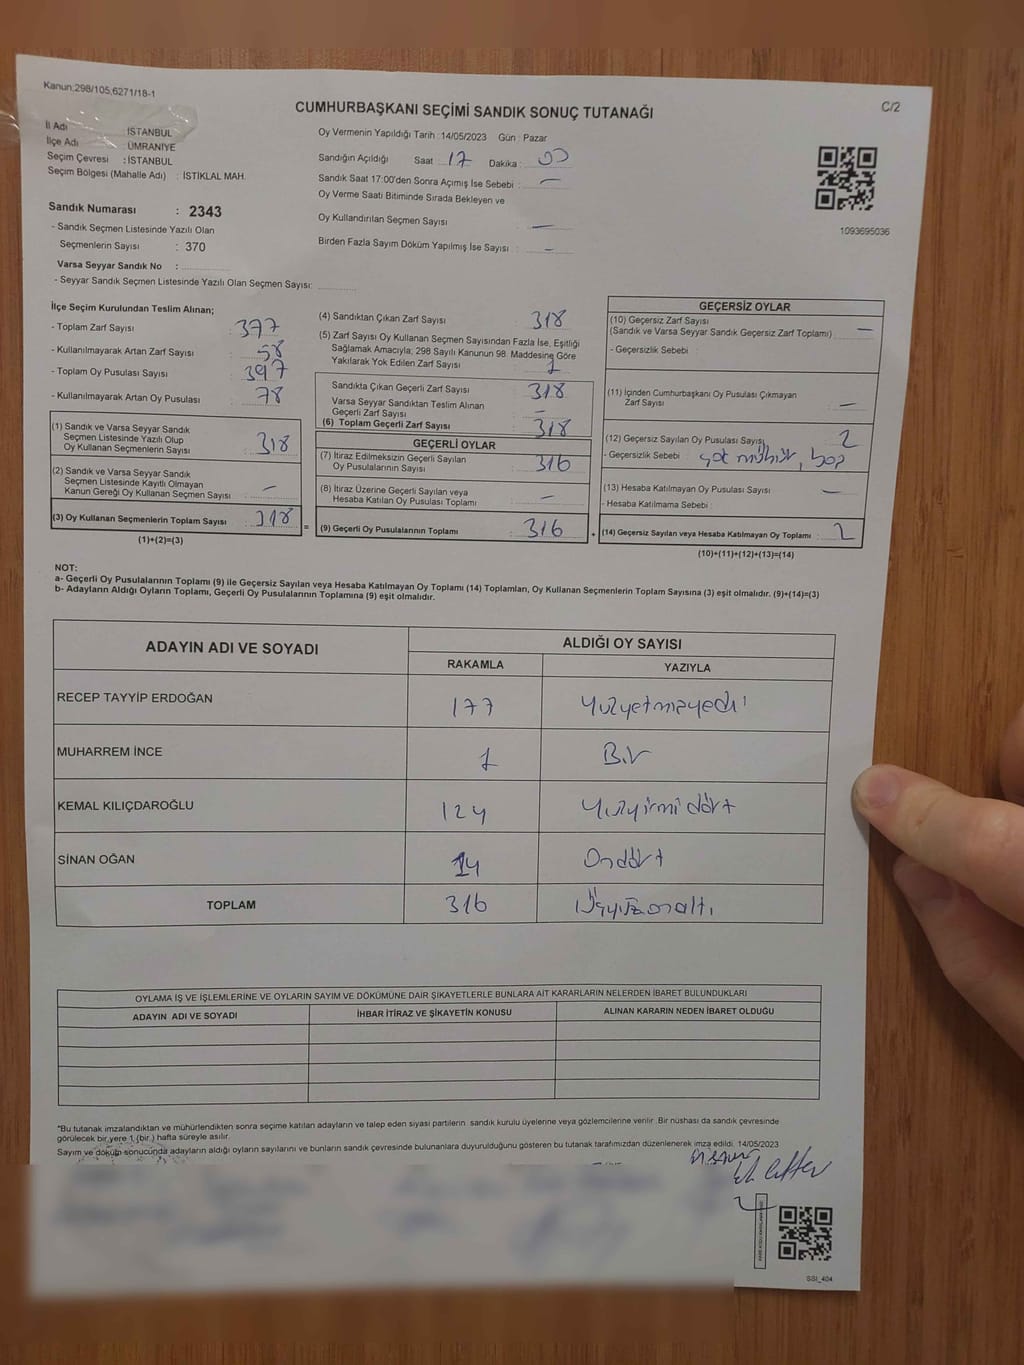 Kanun:298/105,6271/18-1
C/2
CUMHURBAŞKANI SEÇİMİ SANDIK SONUÇ TUTANAĞI
İl Adı : İSTANBUL
İlçe Adı : ÜMRANİYE
Seçim Çevresi : İSTANBUL
Seçim Bölgesi (Mahalle Adı) : İSTİKLAL MAH.
Sandık Numarası : 2343
- Sandık Seçmen Listesinde Yazılı Olan
Seçmenlerin Sayısı : 370
Varsa Seyyar Sandık No :
- Seyyar Sandık Seçmen Listesinde Yazılı Olan Seçmen Sayısı:
Oy Vermenin Yapıldığı Tarih :14/05/2023 Gün : Pazar
Sandığın Açıldığı Saat : 17 Dakika : 00
Sandık Saat 17:00'den Sonra Açımış İse Sebebi : —
Oy Verme Saati Bitiminde Sırada Bekleyen ve
Oy Kullandırılan Seçmen Sayısı : —
Birden Fazla Sayım Döküm Yapılmış İse Sayısı : —
1093695036
İlçe Seçim Kurulundan Teslim Alınan;
- Toplam Zarf Sayısı : 377
- Kullanılmayarak Artan Zarf Sayısı : 58
- Toplam Oy Pusulası Sayısı : 397
- Kullanılmayarak Artan Oy Pusulası : 78
(1) Sandık ve Varsa Seyyar Sandık
Seçmen Listesinde Yazılı Olup
Oy Kullanan Seçmenlerin Sayısı : 318
(2) Sandık ve Varsa Seyyar Sandık
Seçmen Listesinde Kayıtlı Olmayan
Kanun Gereği Oy Kullanan Seçmen Sayısı : —
(3) Oy Kullanan Seçmenlerin Toplam Sayısı : 318
(1)+(2)=(3)
=
(4) Sandıktan Çıkan Zarf Sayısı : 318
(5) Zarf Sayısı Oy Kullanan Seçmen Sayısından Fazla İse, Eşitliği
Sağlamak Amacıyla, 298 Sayılı Kanunun 98. Maddesine Göre
Yakılarak Yok Edilen Zarf Sayısı : 1
Sandıkta Çıkan Geçerli Zarf Sayısı : 318
Varsa Seyyar Sandıktan Teslim Alınan
Geçerli Zarf Sayısı : —
(6) Toplam Geçerli Zarf Sayısı : 318
GEÇERLİ OYLAR
(7) İtiraz Edilmeksizin Geçerli Sayılan
Oy Pusulalarının Sayısı : 316
(8) İtiraz Üzerine Geçerli Sayılan veya
Hesaba Katılan Oy Pusulası Toplamı : —
(9) Geçerli Oy Pusulalarının Toplamı : 316
+
GEÇERSİZ OYLAR
(10) Geçersiz Zarf Sayısı
(Sandık ve Varsa Seyyar Sandık Geçersiz Zarf Toplamı) : —
- Geçersizlik Sebebi :
(11) İçinden Cumhurbaşkanı Oy Pusulası Çıkmayan
Zarf Sayısı : —
(12) Geçersiz Sayılan Oy Pusulası Sayısı : 2
- Geçersizlik Sebebi : çok mühür, boş
(13) Hesaba Katılmayan Oy Pusulası Sayısı : —
- Hesaba Katılmama Sebebi :
(14) Geçersiz Sayılan veya Hesaba Katılmayan Oy Toplamı : 2
(10)+(11)+(12)+(13)=(14)
NOT:
a- Geçerli Oy Pusulalarının Toplamı (9) ile Geçersiz Sayılan veya Hesaba Katılmayan Oy Toplamı (14) Toplamları, Oy Kullanan Seçmenlerin Toplam Sayısına (3) eşit olmalıdır. (9)+(14)=(3)
b- Adayların Aldığı Oyların Toplamı, Geçerli Oy Pusulalarının Toplamına (9) eşit olmalıdır.
ADAYIN ADI VE SOYADI ALDIĞI OY SAYISI
RAKAMLA YAZIYLA
RECEP TAYYİP ERDOĞAN 177 Yüzyetmişyedi
MUHARREM İNCE 1 Bir
KEMAL KILIÇDAROĞLU 124 Yüzyirmidört
SİNAN OĞAN 14 Ondört
TOPLAM 316 Üçyüzonaltı
OYLAMA İŞ VE İŞLEMLERİNE VE OYLARIN SAYIM VE DÖKÜMÜNE DAİR ŞİKAYETLERLE BUNLARA AİT KARARLARIN NELERDEN İBARET BULUNDUKLARI
ADAYIN ADI VE SOYADI İHBAR İTİRAZ VE ŞİKAYETİN KONUSU ALINAN KARARIN NEDEN İBARET OLDUĞU
"Bu tutanak imzalandıktan ve mühürlendikten sonra seçime katılan adayların ve talep eden siyasi partilerin sandık kurulu üyelerine veya gözlemcilerine verilir. Bir nüshası da sandık çevresinde
görülecek bir yere 1 (bir ) hafta süreyle asılır.
Sayım ve döküm sonucunda adayların aldığı oyların sayılarını ve bunların sandık çevresinde bulunanlara duyurulduğunu gösteren bu tutanak tarafımızdan düzenlenerek imza edildi. 14/05/2023
SSI_404